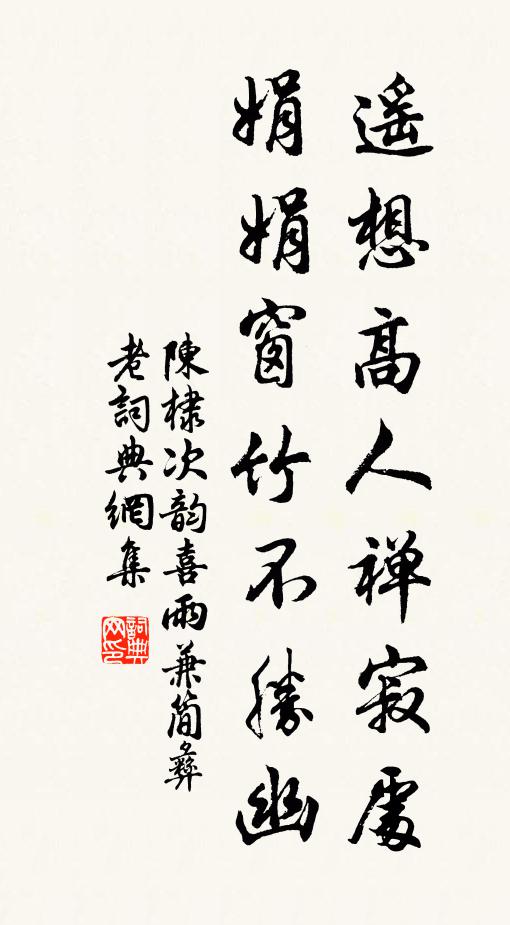 遥想高人禅寂處
娟娟窗竹不勝幽
陳棣次韵喜雨兼简彝
老詞典網集
詞典网印